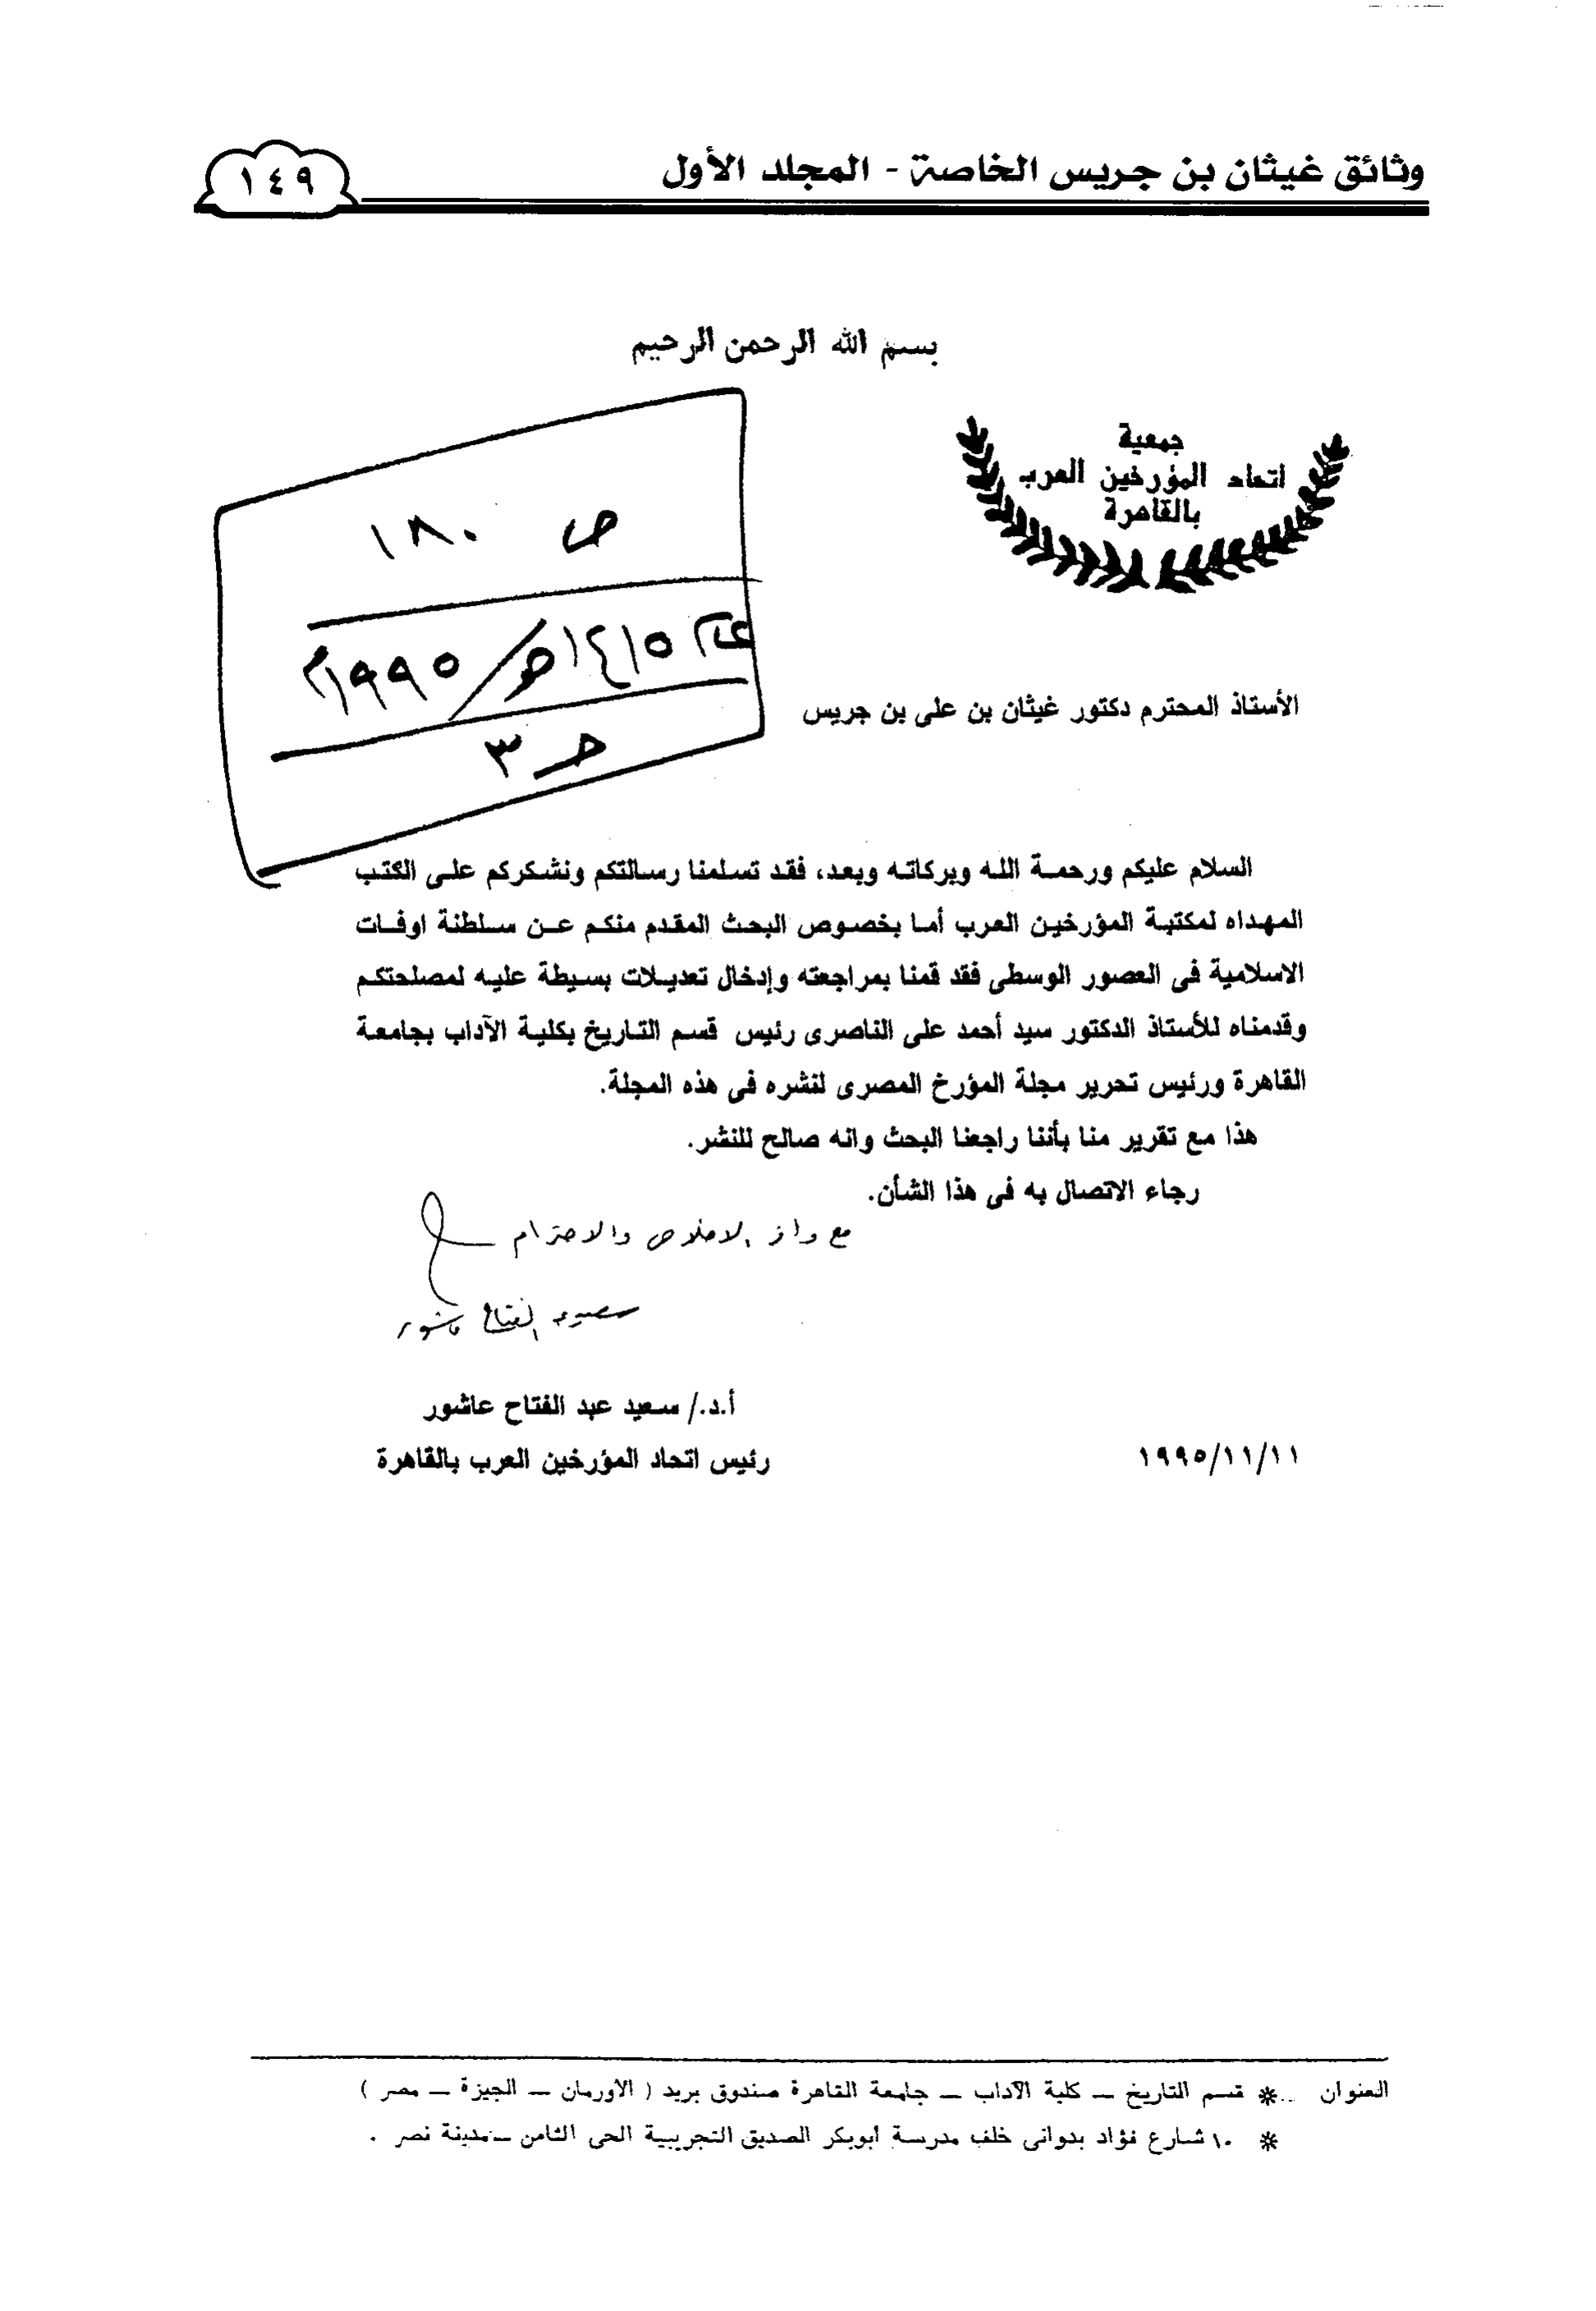 وثائق غيثان بن جريس الخاصة - المجلد الأول
١٤٩
بسم الله الرحمن الرحيم
جمعية
اتحاد المؤرخين العرب
بالقاهرة
ص ١٨٠
عام ١٤١٥هـ/١٩٩٥م
حـ ٣
الأستاذ المحترم دكتور غيثان بن على بن جريس
السلام عليكم ورحمة الله وبركاته وبعد، فقد تسلمنا رسالتكم ونشكركم على الكتب
المهداه لمكتبة المؤرخين العرب أما بخصوص البحث المقدم منكم عن سلطنة اوفات
الاسلامية فى العصور الوسطى فقد قمنا بمراجعته وإدخال تعديلات بسيطة عليه لمصلحتكم
وقدمناه للأستاذ الدكتور سيد أحمد على الناصرى رئيس قسم التاريخ بكلية الآداب بجامعة
القاهرة ورئيس تحرير مجلة المؤرخ المصرى لنشره فى هذه المجلة.
هذا مع تقرير منا بأننا راجعنا البحث وانه صالح للنشر.
رجاء الاتصال به فى هذا الشأن.
مع وافر الاخلاص والاحترام
سعيد عبد الفتاح عاشور
أ.د./ سعيد عبد الفتاح عاشور
رئيس اتحاد المؤرخين العرب بالقاهرة
١٩٩٥/١١/١١
العنوان .. * قسم التاريخ – كلية الآداب – جامعة القاهرة صندوق بريد ( الاورمان – الجيزة – مصر )
* ١٠ شارع فؤاد بدوانى خلف مدرسة ابوبكر الصديق التجريبية الحى الثامن – مدينة نصر .